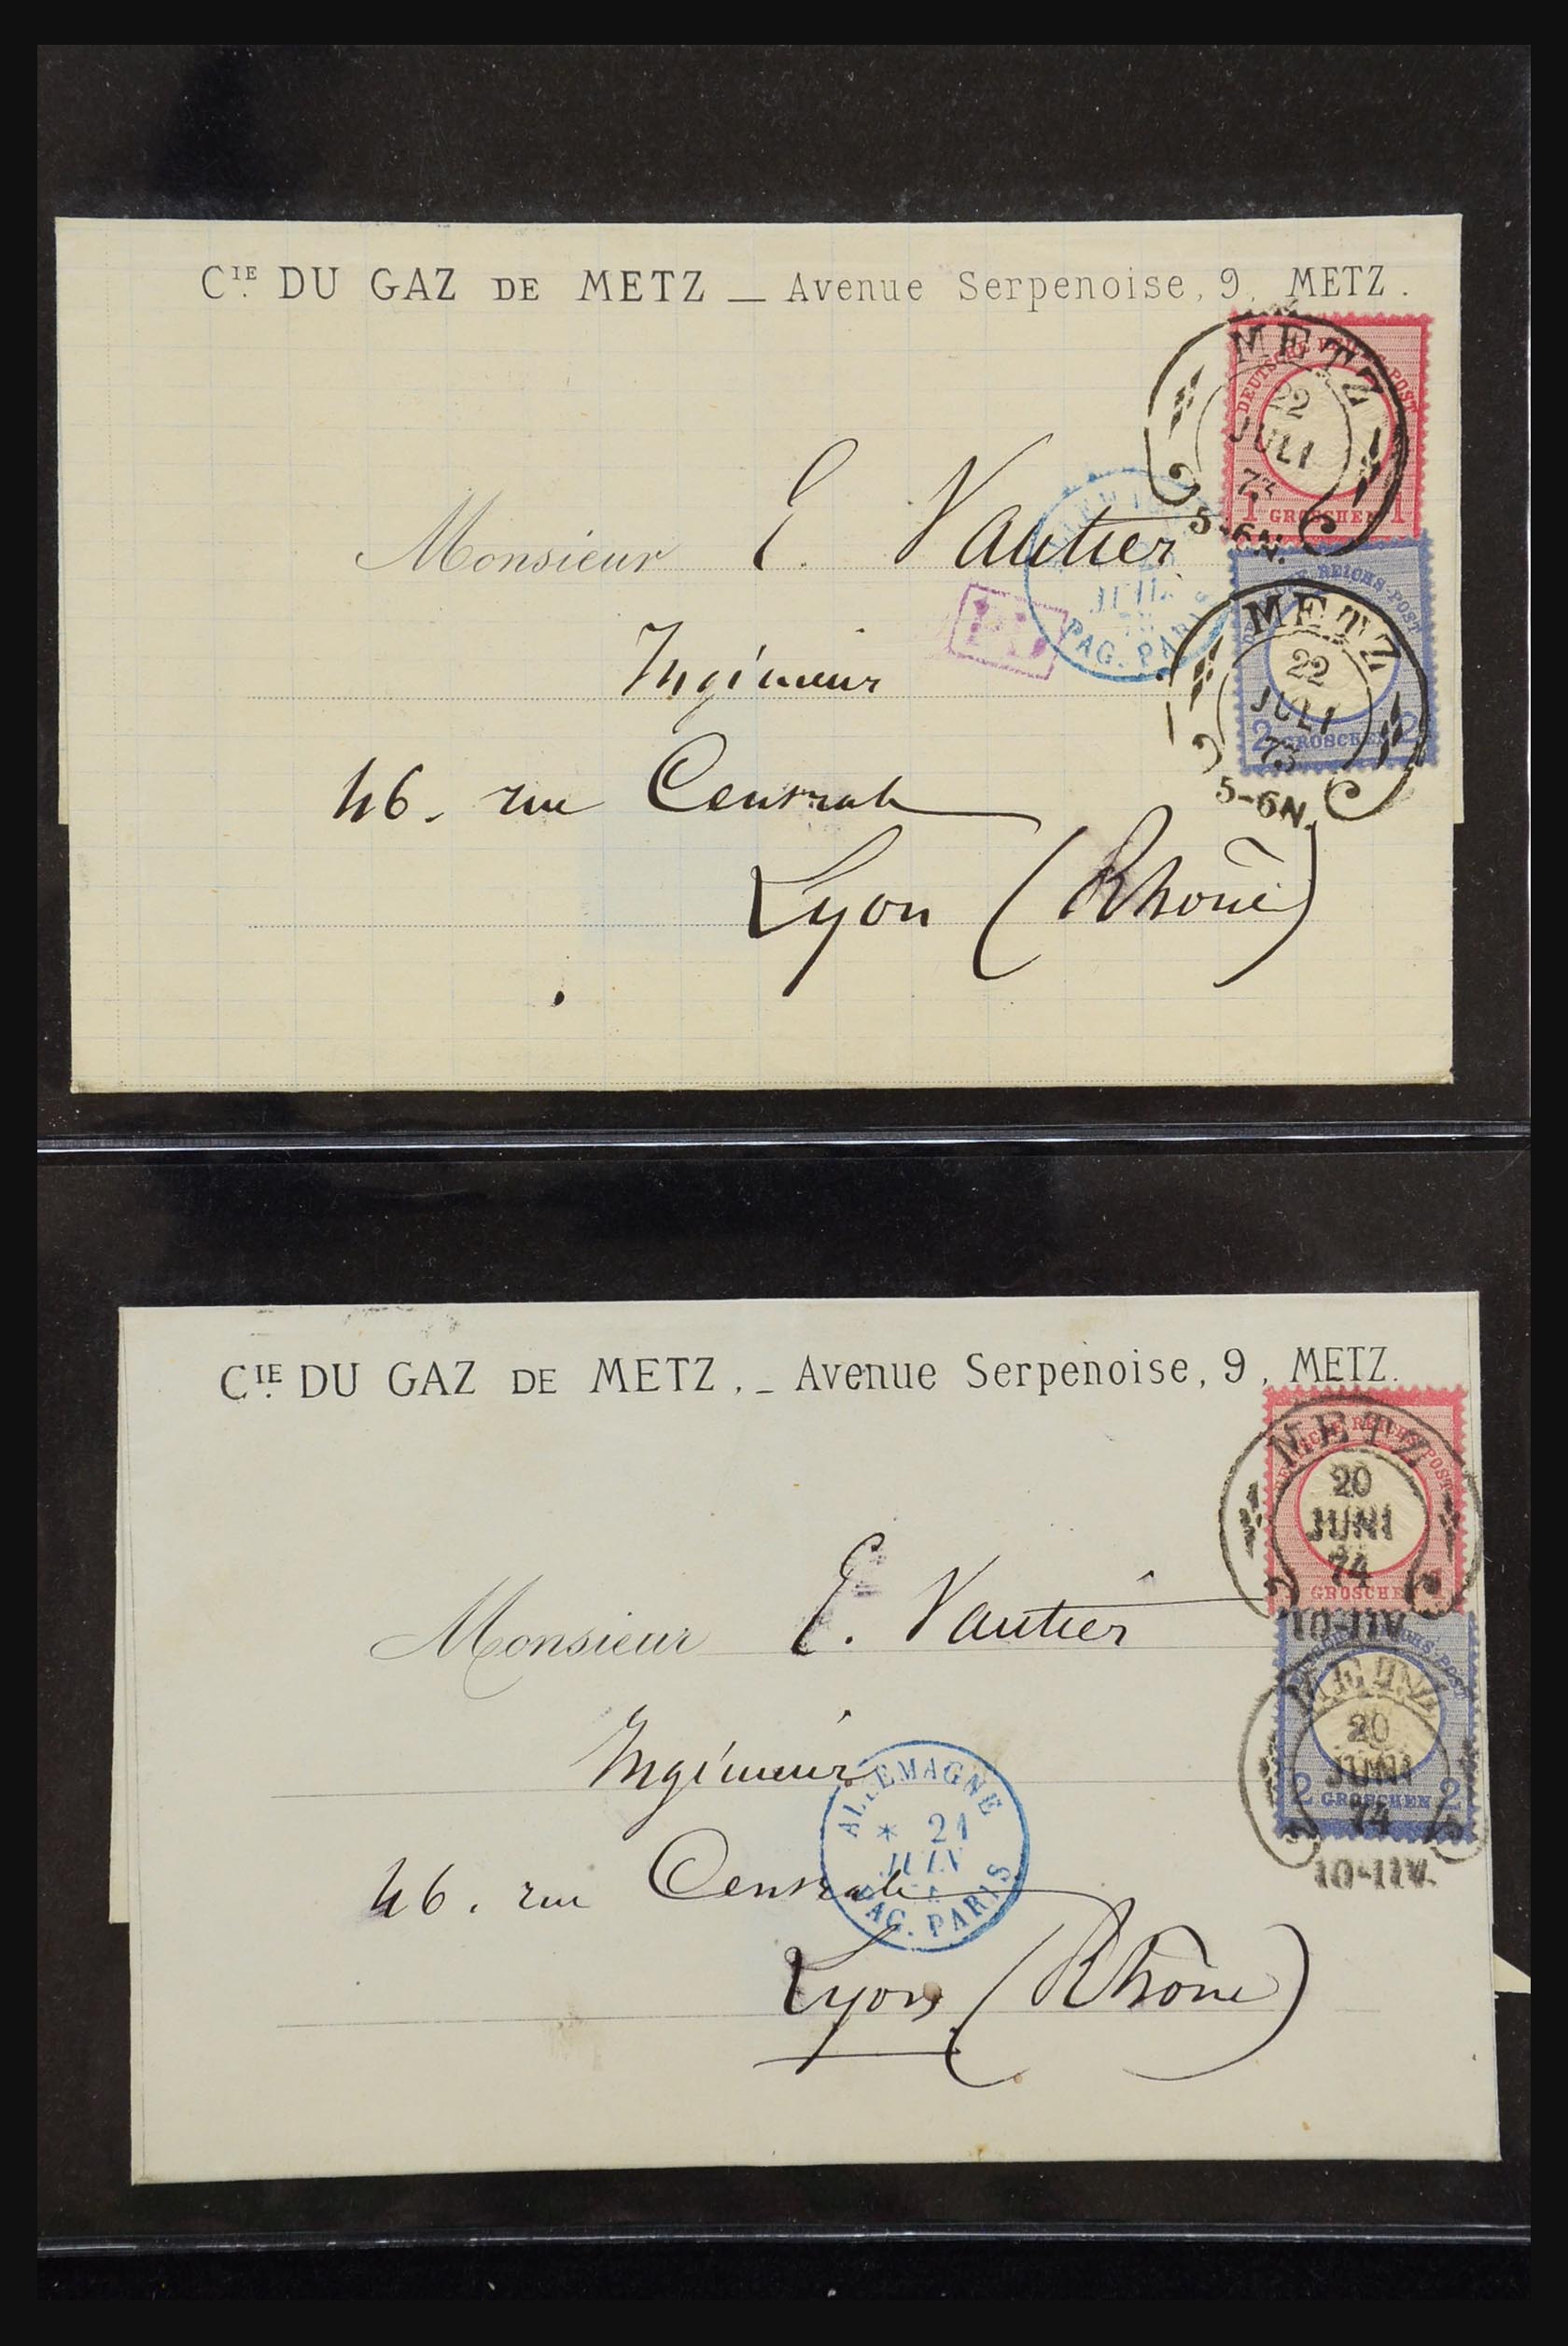 CIE. DU GAZ DE METZ — Avenue Serpenoise, 9, METZ.
METZ
22
JULI
73
5-6N.
DEUTSCHE REICHS-POST
1 GROSCHEN 1
Monsieur E. Vautier
PD
JUIL
PAG. PARIS
REICHS-POST
METZ
22
JULI
73
2 GROSCHEN 2
5-6N.
Ingénieur
46. rue Centrale
Lyon (Rhône)
CIE. DU GAZ DE METZ. — Avenue Serpenoise, 9, METZ.
DEUTSCHE REICHS-POST
METZ
20
JUNI
74
GROSCHEN
10-11V.
Monsieur E. Vautier
REICHS-POST
20
JUNI
74
2 GROSCHEN 2
10-11V.
Ingénieur
ALLEMAGNE
* 21
JUIN
PAG. PARIS
46. rue Centrale
Lyon (Rhône)